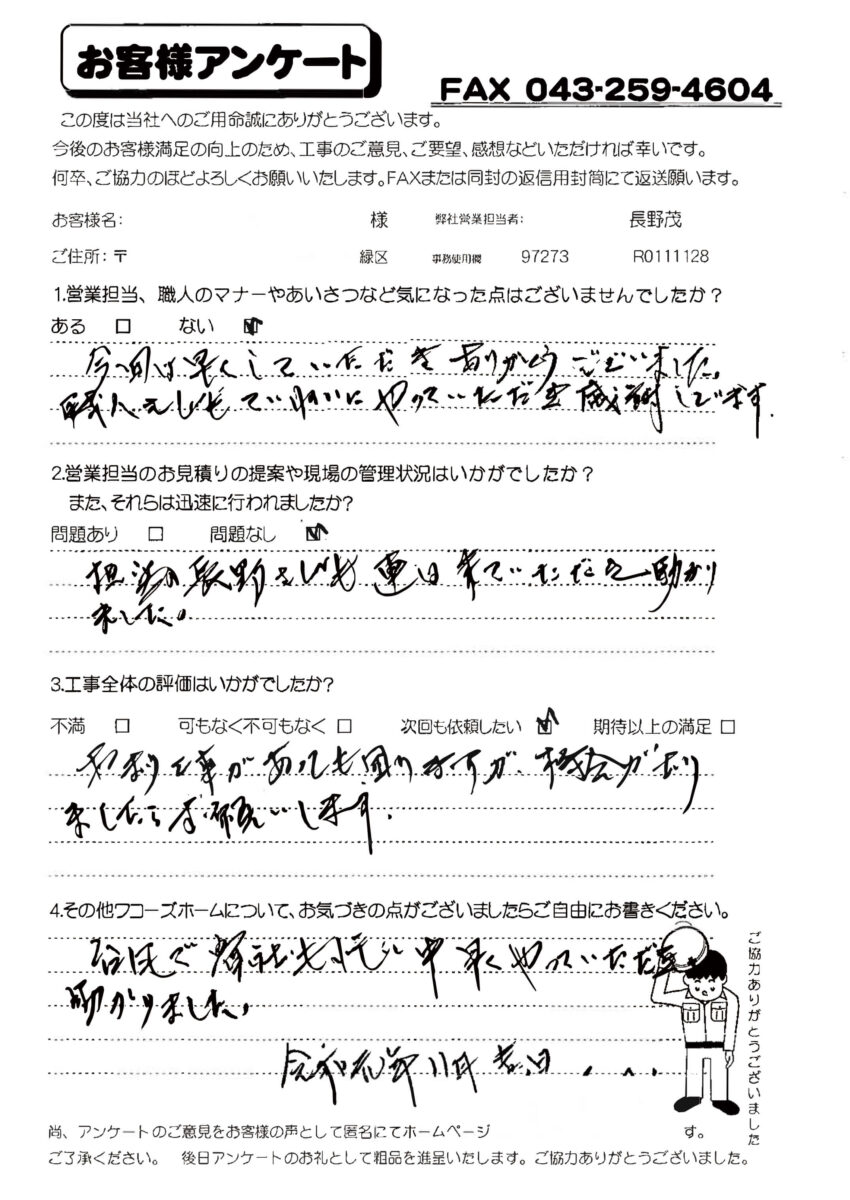 お客様アンケート
FAX 043-259-4604
この度は当社へのご用命誠にありがとうございます。
今後のお客様満足の向上のため、工事のご意見、ご要望、感想などいただければ幸いです。
何卒、ご協力のほどよろしくお願いいたします。FAXまたは同封の返信用封筒にて返送願います。
お客様名: 様 弊社営業担当者: 長野茂
ご住所:〒 緑区 事務使用欄 97273 R0111128
1.営業担当、職人のマナーやあいさつなど気になった点はございませんでしたか?
ある □ ない ☑
今回は早くしていただきありがとうございました。
職人さんもていねいにやっていただき感謝しています。
2.営業担当のお見積りの提案や現場の管理状況はいかがでしたか?
また、それらは迅速に行われましたか?
問題あり □ 問題なし ☑
担当の長野さんも 来ていただき助かり
ました。
3.工事全体の評価はいかがでしたか?
不満 □ 可もなく不可もなく □ 次回も依頼したい ☑ 期待以上の満足 □
工事があっても困りますが、機会があり
ましたらお願いします。
4.その他ワコーズホームについて、お気づきの点がございましたらご自由にお書きください。
台風で 中早くやっていただき
助かりました。
令和元年11月 日
ご協力ありがとうございました
尚、アンケートのご意見をお客様の声として匿名にてホームページ す。
ご了承ください。 後日アンケートのお礼として粗品を進呈いたします。ご協力ありがとうございました。